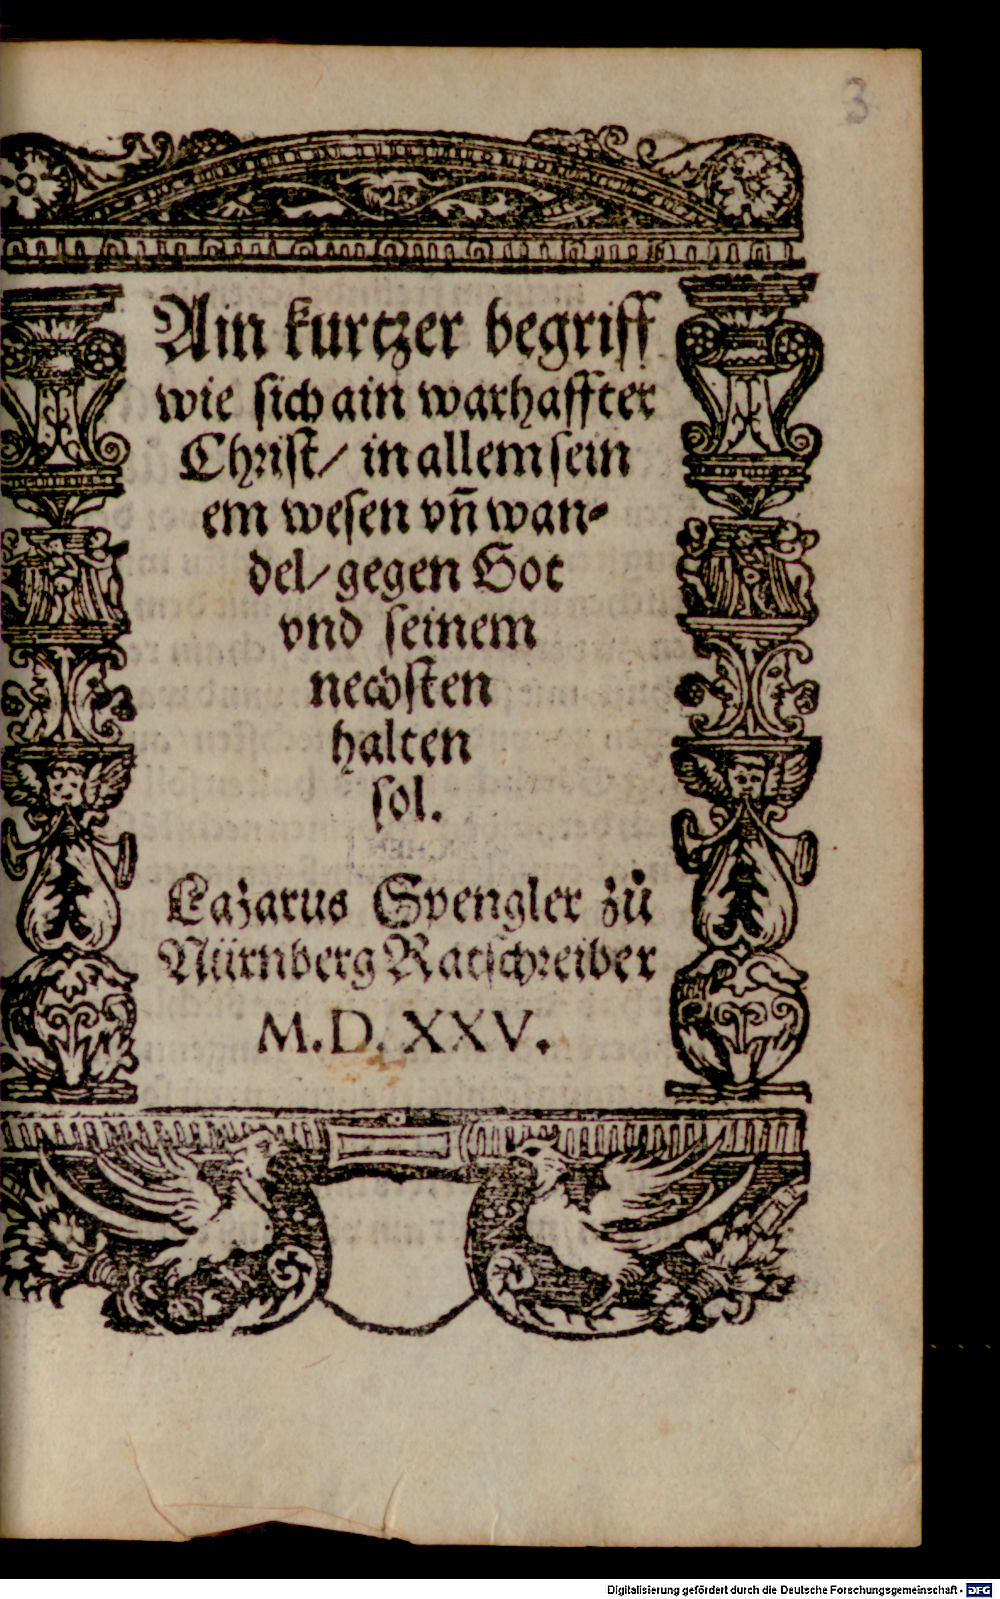 3
Ain kurtzer begriff
wie sich ain warhaffter
Christ/ in allem sein
em wesen vn̄ wan⸗
del/ gegen Got
vnd seinem
nechsten
halten
sol.
Lazarus Spengler zů
Nürnberg Ratschreiber
M.D.XXV.
Digitalisierung gefördert durch die Deutsche Forschungsgemeinschaft - DFG